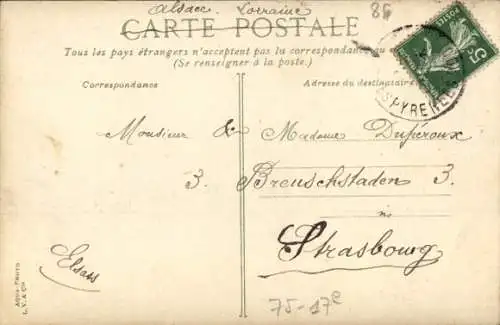 Alsace Lorraine
86
CARTE POSTALE
Tous les pays étrangers n'acceptent pas la correspondance au
(Se renseigner à la poste.)
Correspondance
Adresse du destinataire
POSTES
5
PYRENEES
Monsieur & Madame Dupéroux
3. Breuschstaden 3.
Strasbourg
Elsass
AQUA-PHOTO
L. V. & Cie
75-17e